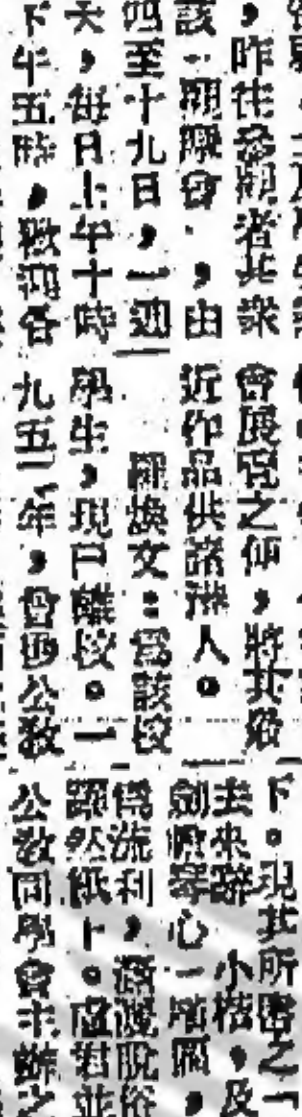 ，昨往參觀者甚衆
該期會，由
四至十九日，一連
天，每日上午十時
下午五時，歡迎各
會展覽之，將其最
近作品供諸港人。
羅煥文：爲該校
學生，現已離校。一
九五二年，曾獲公教
下。現其所書之「
去來辭」小楷，及
劍膽琴心一幅，
爲流利，瀟灑脫俗
躍然紙上。盧君並
公教同學會主辦之